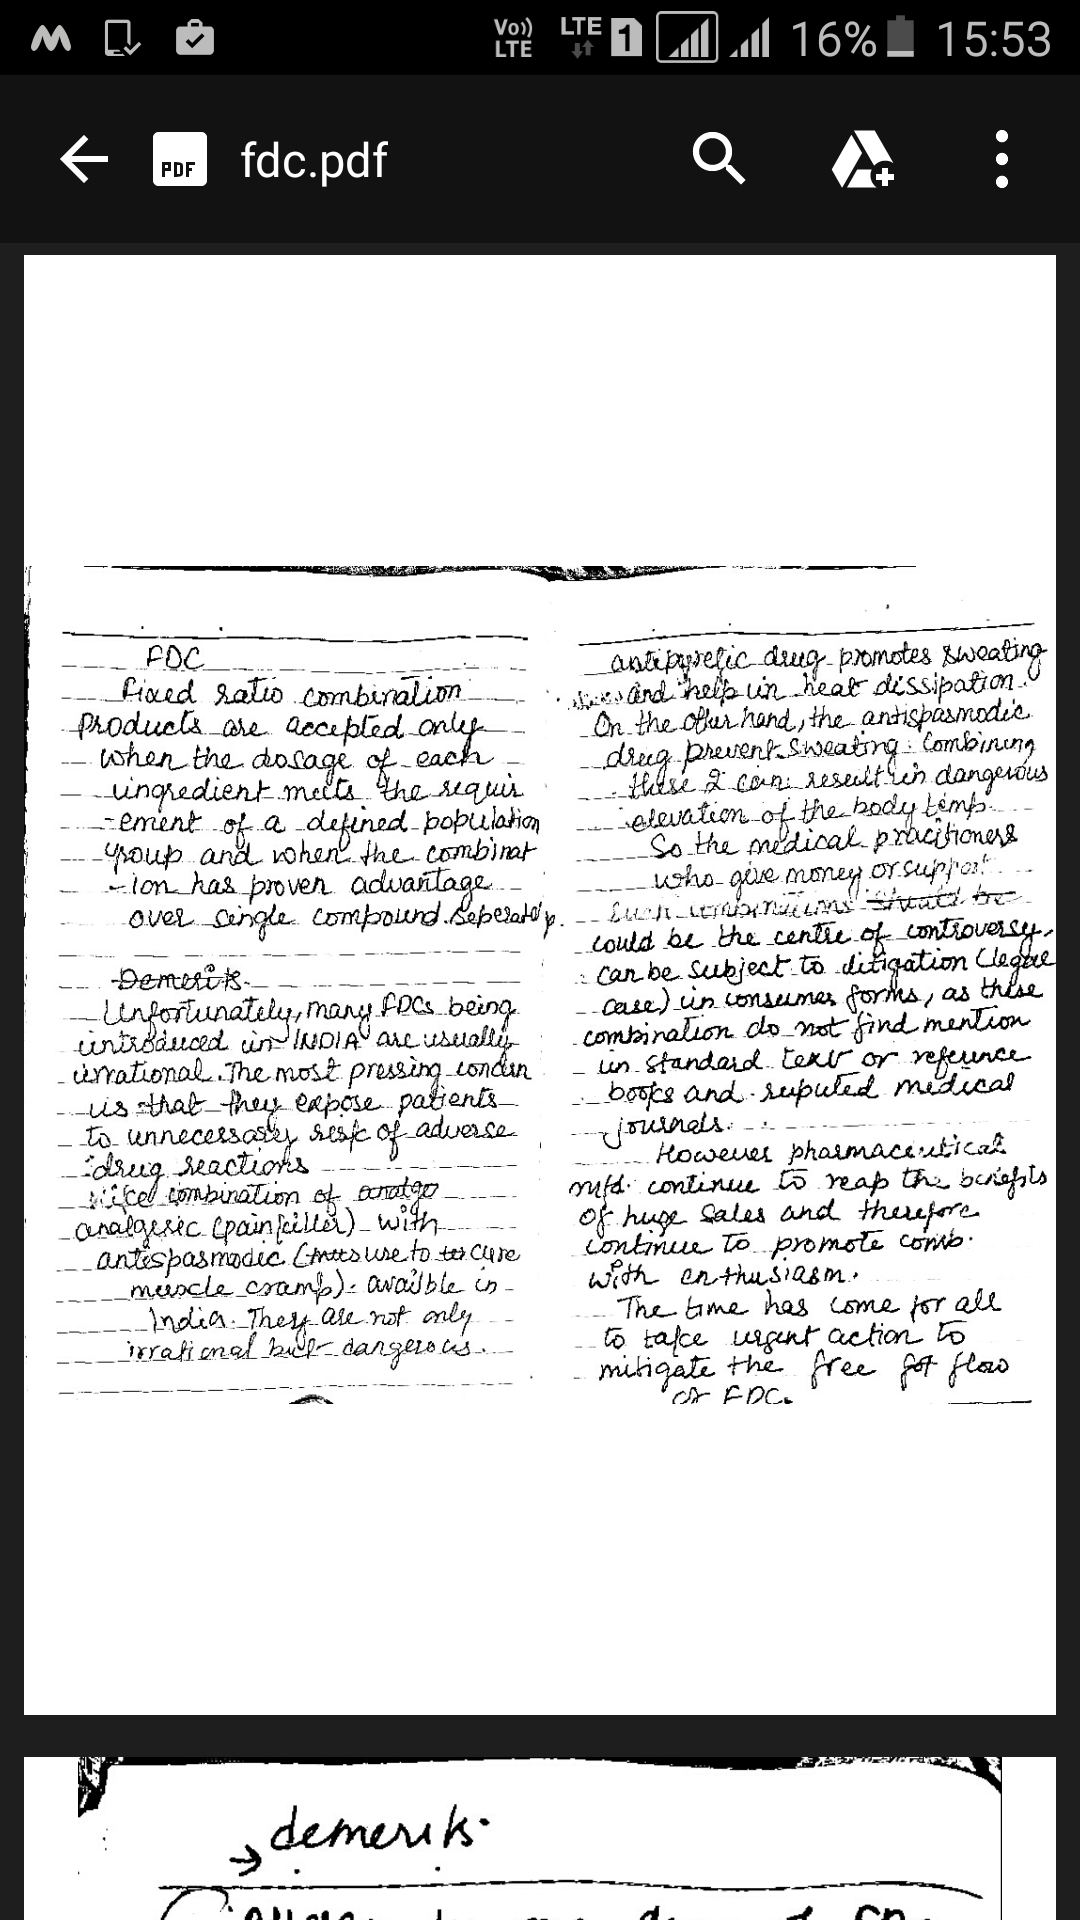 Vo)) LTE LTE 1 16% 15:53
PDF fdc.pdf
FDC
Fixed ratio combination
products are accepted only
when the dosage of each
ingredient meets the requir
-ement of a defined population
group and when the combinat
-ion has proven advantage
over single compound seperately.
Demerits
Unfortunately, many FDCs being
introduced in INDIA are usually
irrational. The most pressing concern
is that they expose patients
to unnecessary risk of adverse
drug reactions
like combination of
analgesic (painkiller) with
antispasmodic (use to cure
muscle cramp). availble in
India. They are not only
irrational but dangerous.
antipyretic drug promotes sweating
and help in heat dissipation.
On the other hand, the antispasmodic
drug prevent sweating. Combining
these 2 can result in dangerous
elevation of the body temp.
So the medical practitioners
who give money or support
such combinations should be
could be the centre of controversy,
can be subject to litigation (legal
case) in consumer forms, as these
combination do not find mention
in standard text or reference
books and reputed medical
journals.
However pharmaceutical
mfd. continue to reap the benefits
of huge sales and therefore
continue to promote comb.
with enthusiasm.
The time has come for all
to take urgent action to
mitigate the free flow
of FDC.
→ demerits.